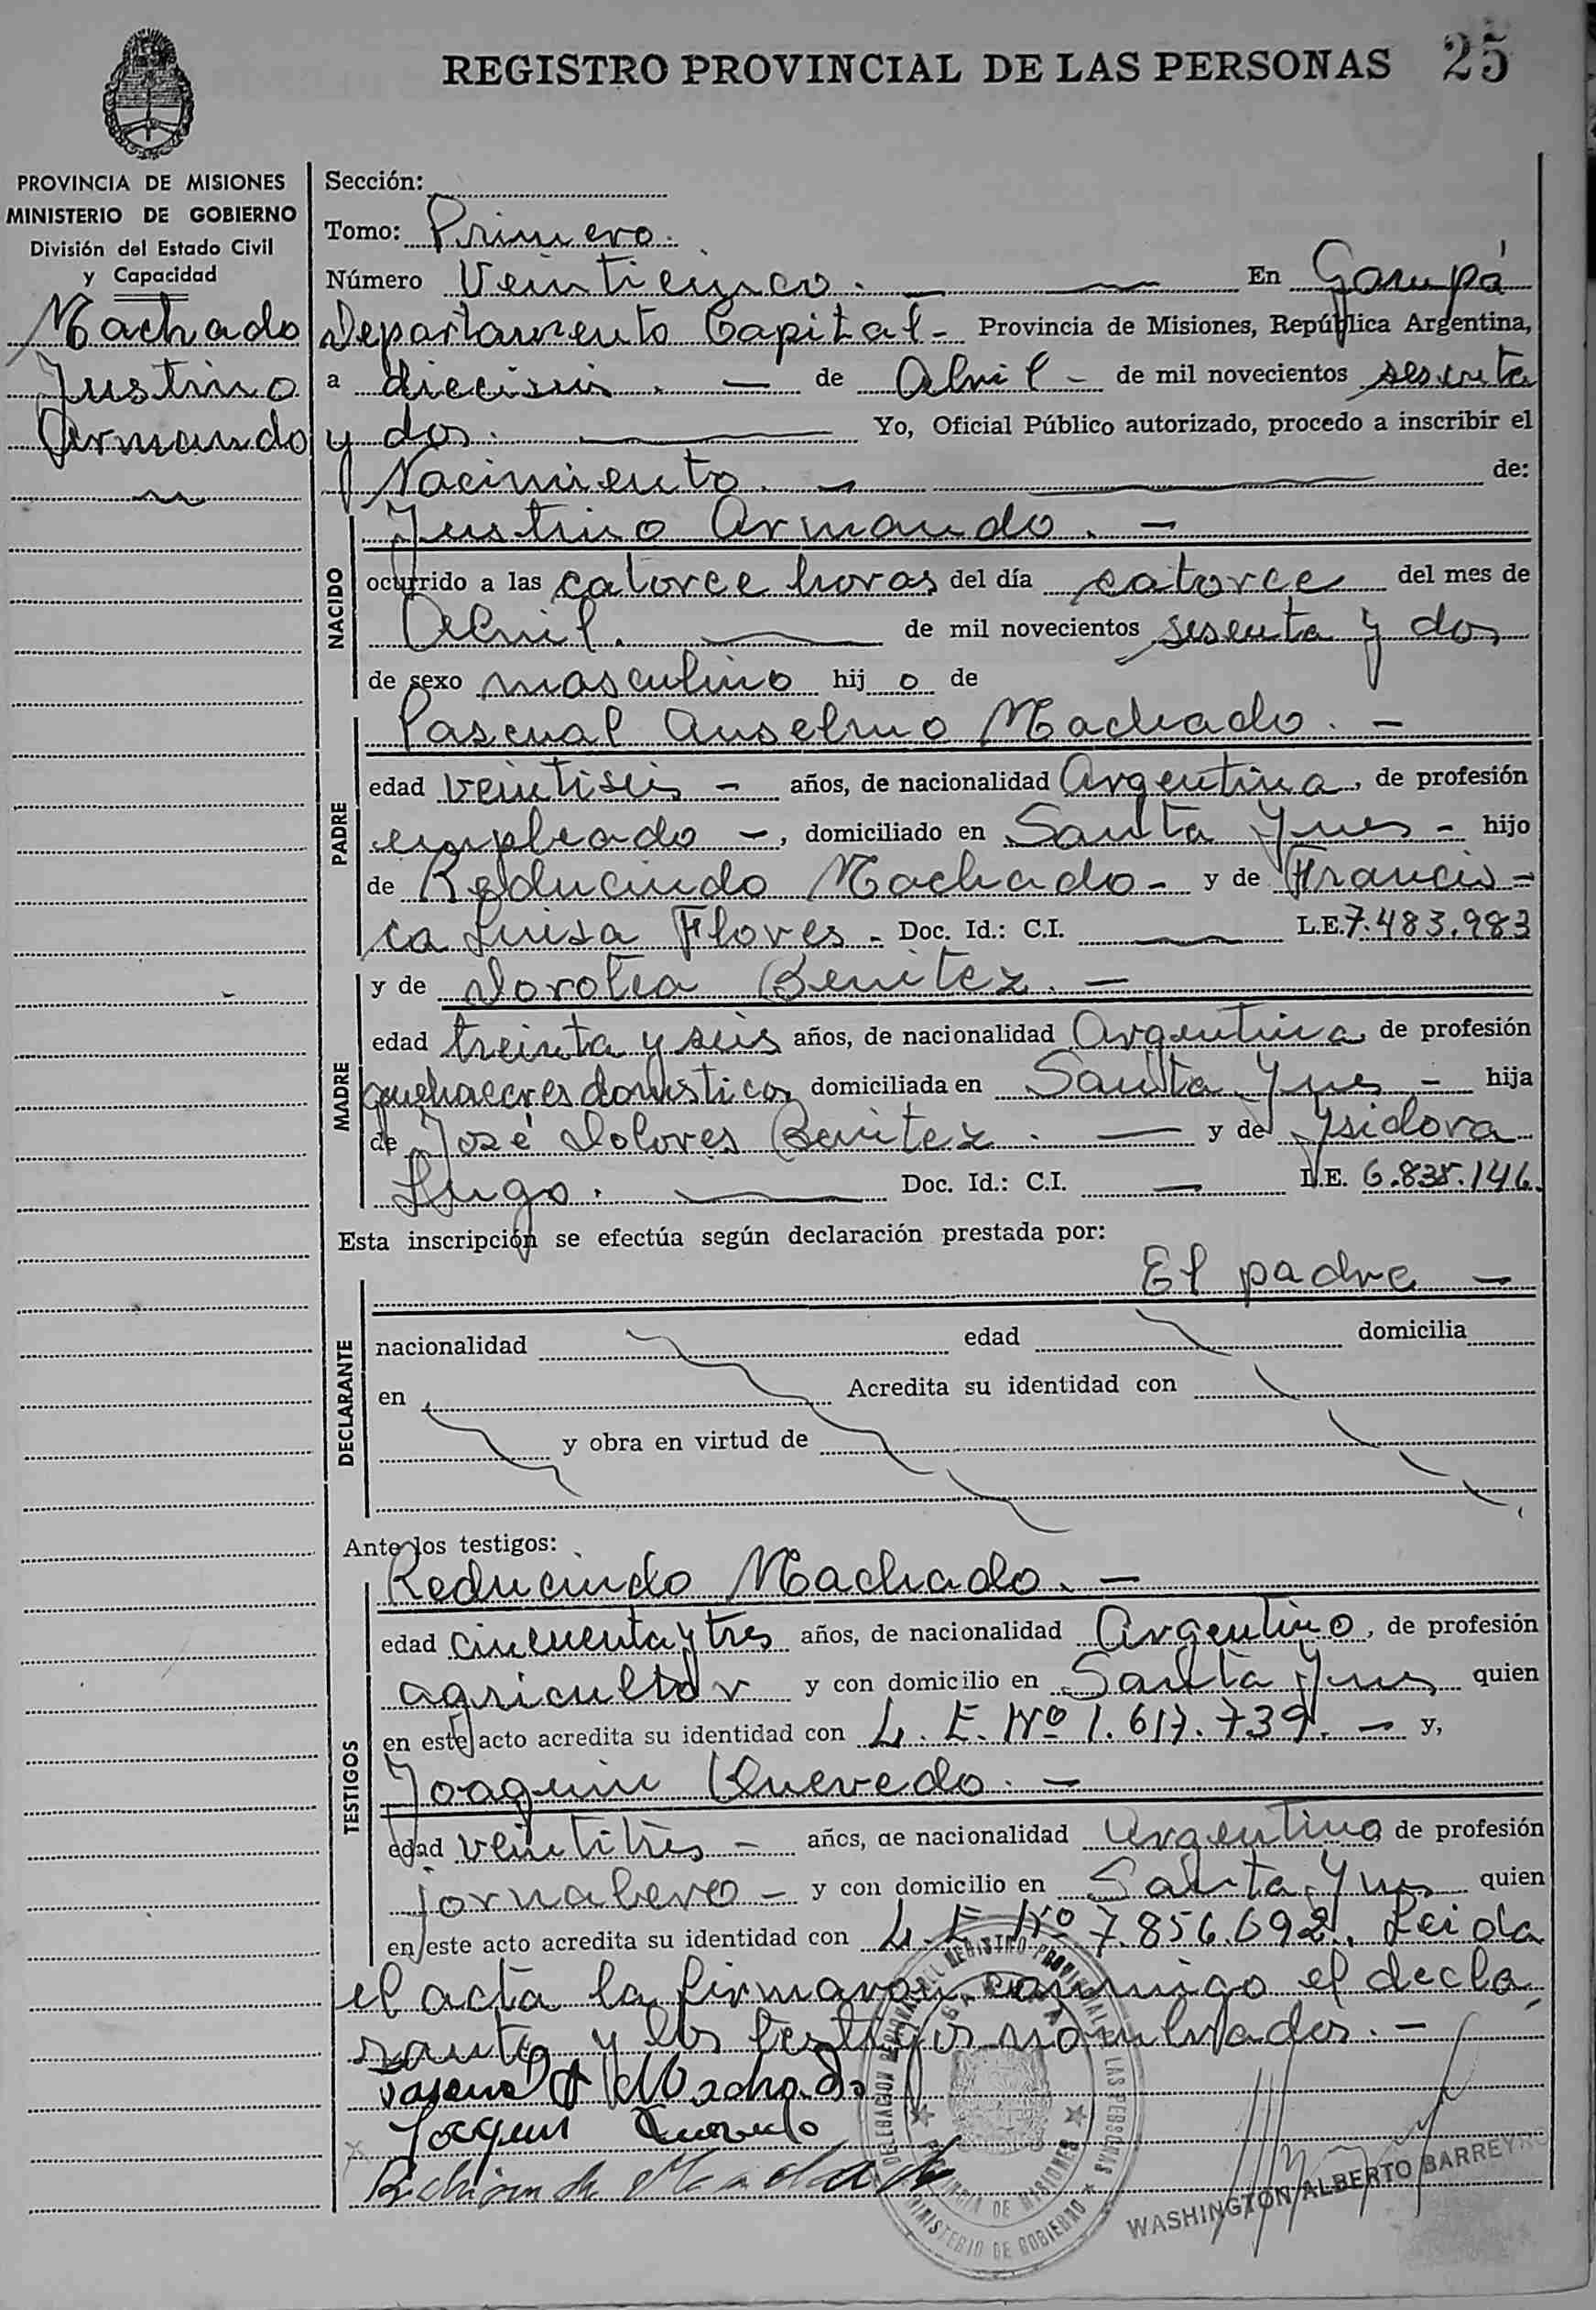 REGISTRO PROVINCIAL DE LAS PERSONAS 25
PROVINCIA DE MISIONES
MINISTERIO DE GOBIERNO
División del Estado Civil
y Capacidad
Machado
Justino
Armando
Sección:
Tomo: Primero.
Número Veinticinco. En Garupá
Departamento Capital - Provincia de Misiones, República Argentina,
a dieciseis. - de Abril - de mil novecientos sesenta
y dos. Yo, Oficial Público autorizado, procedo a inscribir el
Nacimiento. - de:
NACIDO
Justino Armando. -
ocurrido a las catorce horas del día catorce del mes de
Abril. de mil novecientos sesenta y dos
de sexo masculino hij o de
PADRE
Pascual Anselmo Machado. -
edad veintiseis - años, de nacionalidad Argentina, de profesión
empleado -, domiciliado en Santa Ynes - hijo
de Reducindo Machado - y de Francis-
ca Luisa Flores - Doc. Id.: C.I. L.E. 7.483.983
MADRE
y de Dorotea Benitez. -
edad treinta y seis años, de nacionalidad Argentina de profesión
quehaceres domesticos domiciliada en Santa Ynes - hija
de José Dolores Benitez. y de Ysidora
Lugo. Doc. Id.: C.I. - L.E. 6.838.146.
Esta inscripción se efectúa según declaración prestada por:
DECLARANTE
El padre -
nacionalidad edad domicilia
en Acredita su identidad con
y obra en virtud de
Ante los testigos:
TESTIGOS
Reducindo Machado. -
edad cincuenta y tres años, de nacionalidad Argentino, de profesión
agricultor y con domicilio en Santa Ynes quien
en este acto acredita su identidad con L. E. Nº 1.617.739. - y,
Joaquin Quevedo. -
edad veintitres - años, de nacionalidad Argentino de profesión
jornalero - y con domicilio en Santa Ynes quien
en este acto acredita su identidad con L. E. Nº 7.856.692. Leida
el acta la firmaron conmigo el decla
rante y los testigos nombrados. -
Pascual A Machado
Joaquin Quevedo
Machado
DELEGACION DEL REGISTRO PROVINCIAL DE LAS PERSONAS
GARUPA
PROVINCIA DE MISIONES
MINISTERIO DE GOBIERNO
WASHINGTON ALBERTO BARREYRO